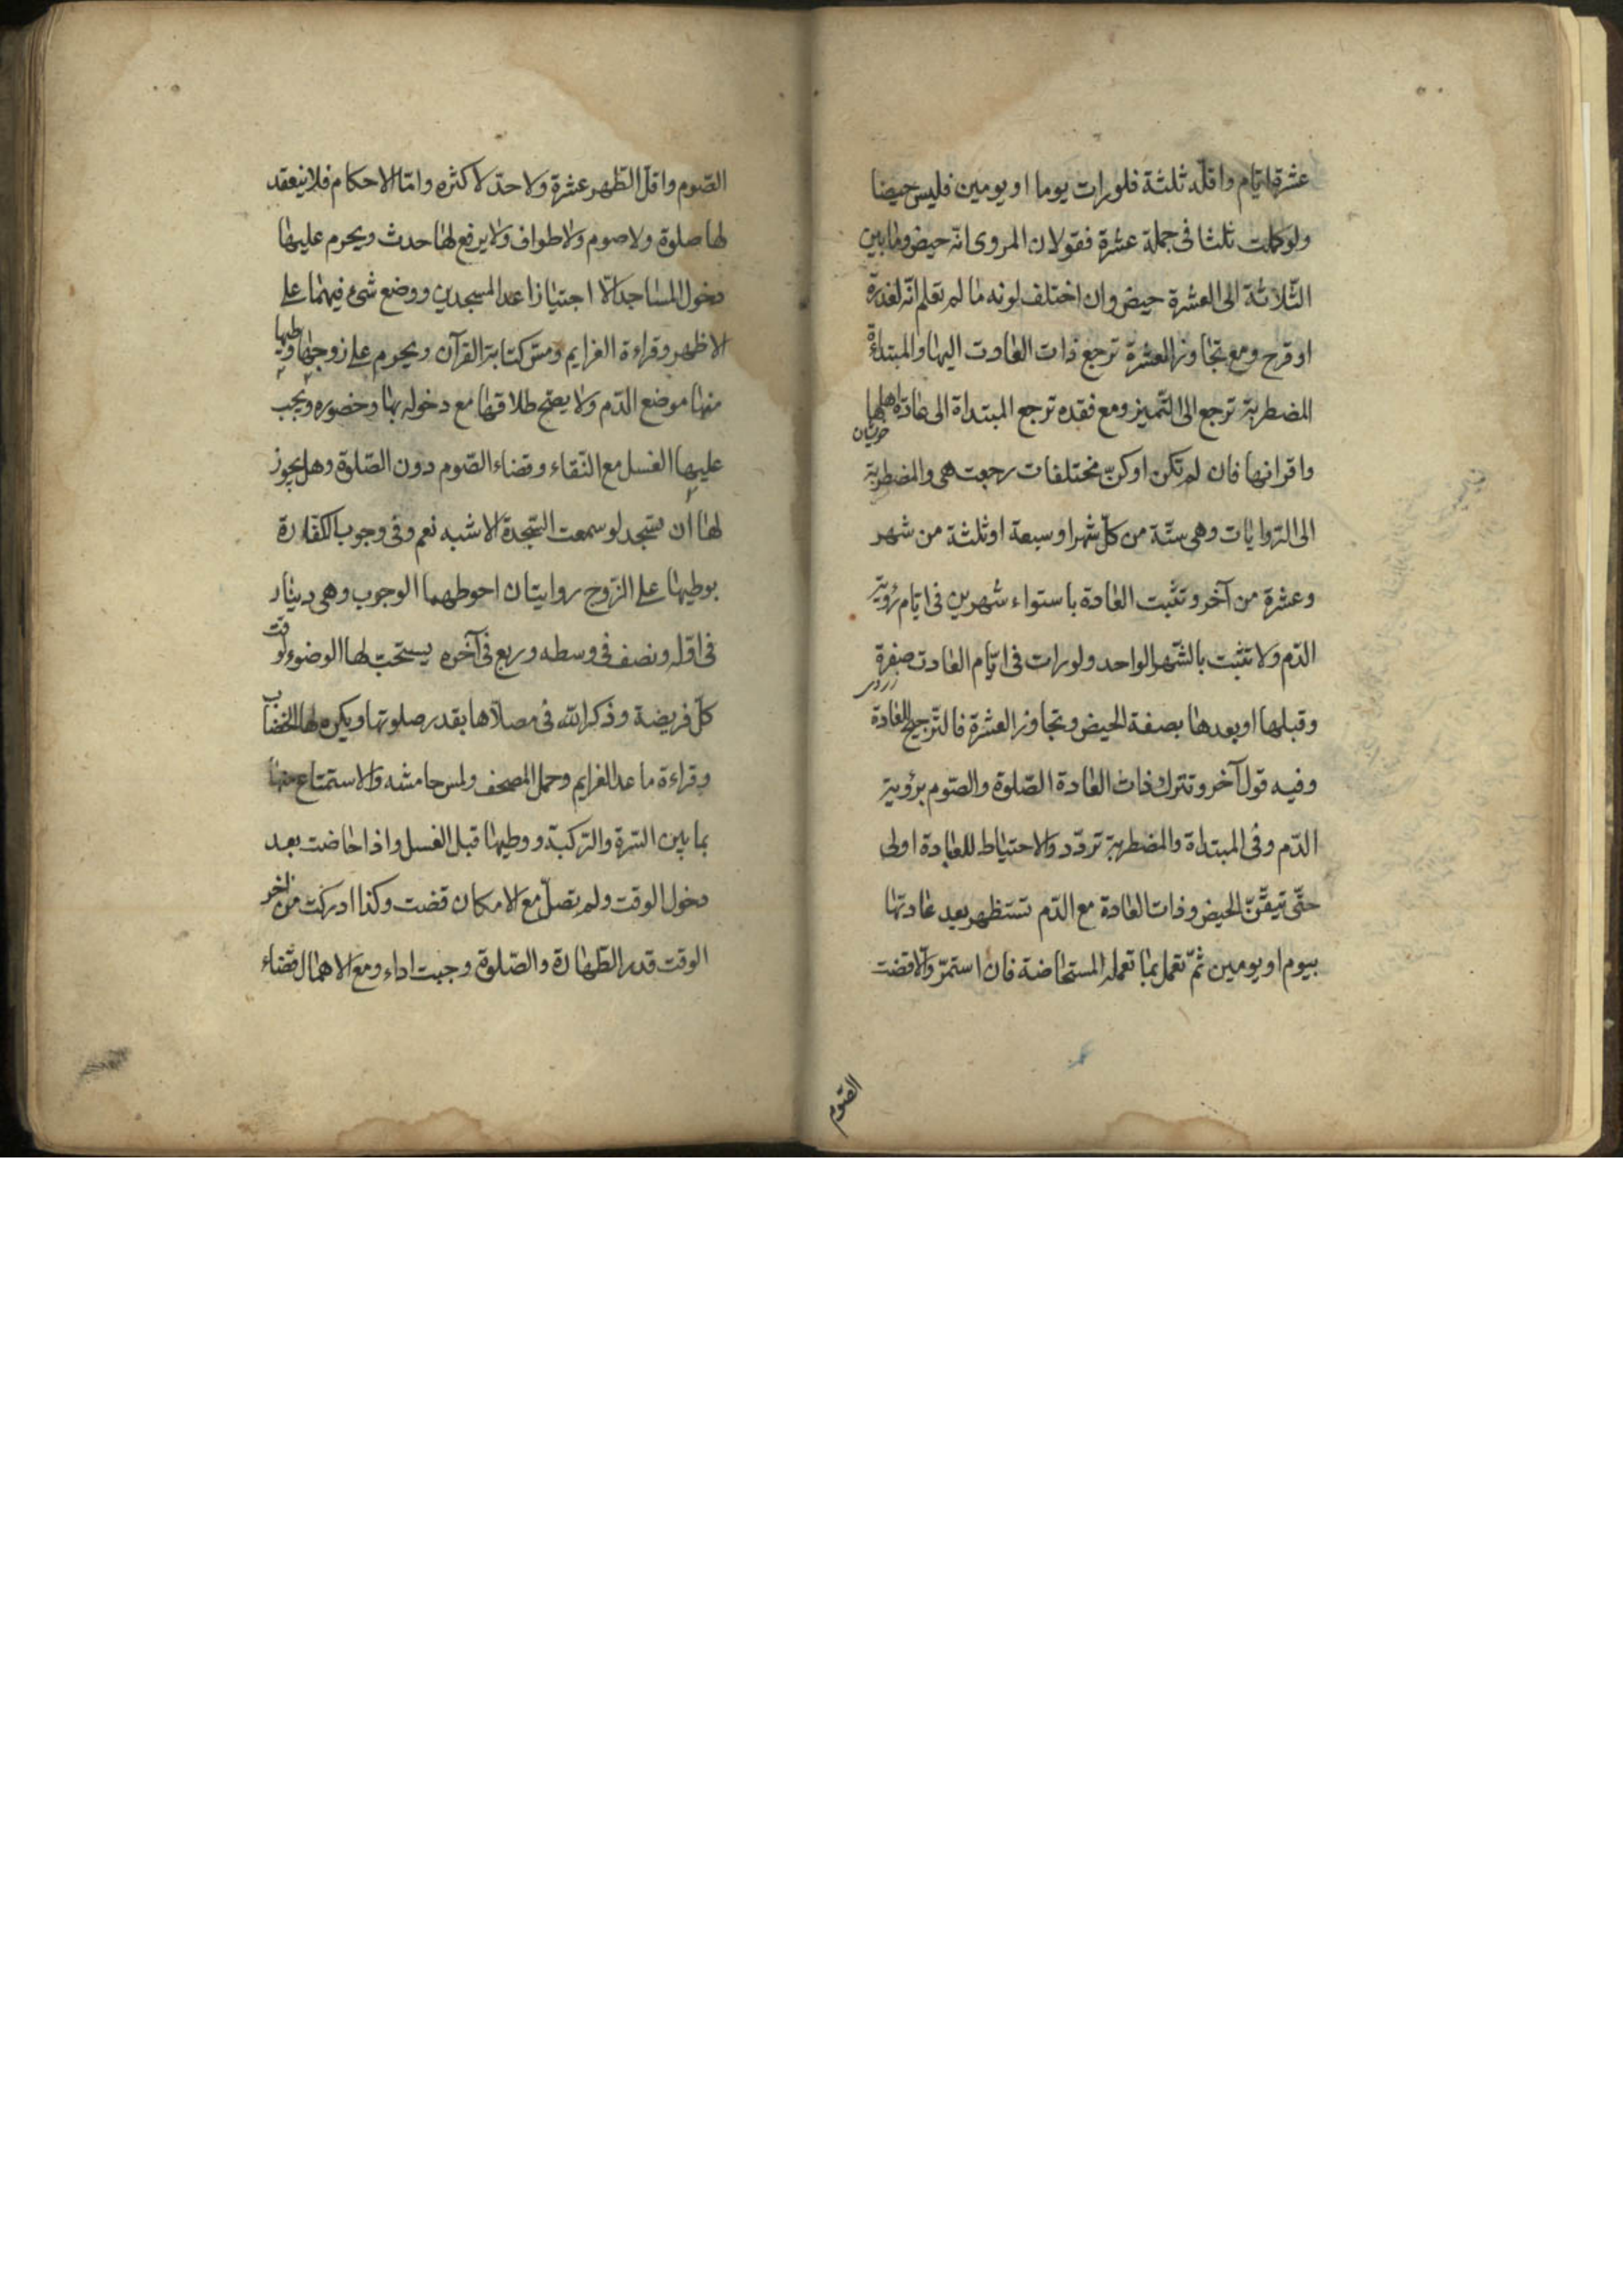 عشرة ايّام واقلّه ثلثة فلورات يوما او يومين فليس حيضا
ولو كملت ثلثا فى جملة عشرة فقولان المروى انّه حيض وما بين
الثّلاثة الى العشرة حيض وان اختلف لونه ما لم تعلم انّه لعذرة
او قرح ومع تجاوز العشرة ترجع ذات العادت اليها والمبتدءة
المضطربة ترجع الى التّميز ومع فقده ترجع المبتداة الى عادة اهلها
خويشان
واقرانها فان لم تكن او كنّ مختلفات رجعت هى والمضطربة
الى الرّوايات وهى ستّة من كلّ شهر او سبعة او ثلثة من شهر
وعشرة من آخر وتثبت العادة باستواء شهرين فى ايّام رؤية
الدّم ولا تثبت بالشّهر الواحد ولورات فى ايّام العادت صفرة
زردى
وقبلها او بعدها بصفة الحيض وتجاوز العشرة فالتّرجيح للعادة
وفيه قول آخر وتترك ذات العادة الصّلوة والصّوم برؤية
الدّم وفى المبتداة والمضطربة تردّد والاحتياط للعبادة اولى
حتّى تيقّن الحيض وذات العادة مع الدّم تستظهر بعد عادتها
بيوم او يومين ثمّ تعمل بما تعمله المستحاضة فان استمرّ والّا قضت
الصّوم
الصّوم واقلّ الطّهر عشرة ولا حدّ لاكثره وامّا الاحكام فلا ينعقد
لها صلوة ولا صوم ولا طواف ولا يرفع لها حدث ويحرم عليها
دخول المساجد الّا اجتيازا عدا المسجدين ووضع شىء فيهما على
الاظهر وقراءة العزايم ومسّ كتابة القرآن ويحرم على زوجها وطيها
منها موضع الدّم ولا يصحّ طلاقها مع دخوله بها وحضوره ويجب
عليها الغسل مع النّقاء وقضاء الصّوم دون الصّلوة وهل يجوز
لها ان تسجد لو سمعت السّجدة الاشبه نعم وفى وجوب الكفّارة
بوطيها على الزّوج روايتان احوطهما الوجوب وهى دينار
فى اوّله ونصف فى وسطه وربع فى آخره يستحبّ لها الوضوء لوقت
كلّ فريضة وذكر الله فى مصلّاها بقدر صلوتها ويكره لها الخضاب
وقراءة ما عدا العزايم وحمل المصحف ولمس هامشه والاستمتاع منها
بما بين السّرة والرّكبة ووطيها قبل الغسل واذا حاضت بعد
دخول الوقت ولم تصلّ مع الامكان قضت وكذا ادركت من آخر
الوقت قدر الطّهارة والصّلوة وجبت اداء ومع الاهمال قضاء